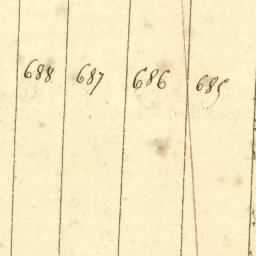 688 687 686 685